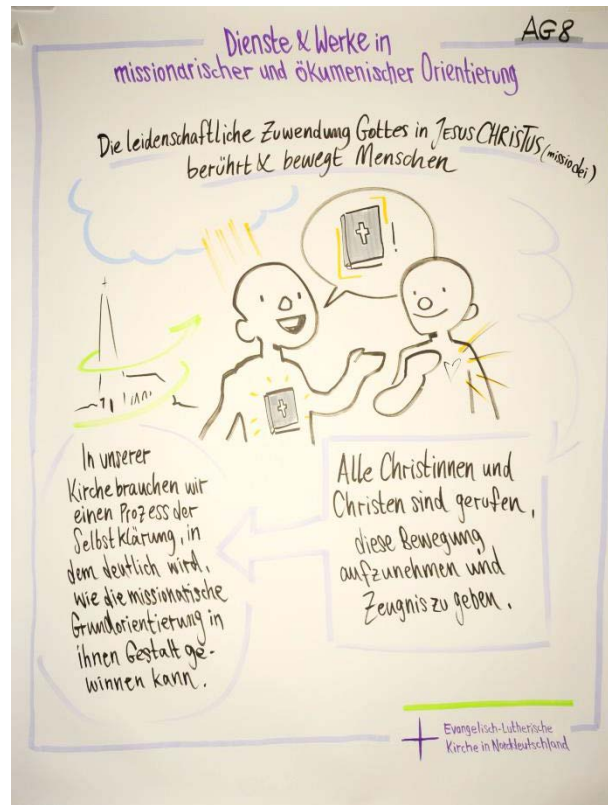 AG8
Dienste & Werke in
missionarischer und ökumenischer Orientierung
Die leidenschaftliche Zuwendung Gottes in JESUS CHRISTUS (missio dei)
berührt & bewegt Menschen
!
In unserer
Kirche brauchen wir
einen Prozess der
Selbstklärung, in
dem deutlich wird,
wie die missionarische
Grundorientierung in
ihnen Gestalt ge-
winnen kann.
Alle Christinnen und
Christen sind gerufen,
diese Bewegung
aufzunehmen und
Zeugnis zu geben.
Evangelisch-Lutherische
Kirche in Norddeutschland